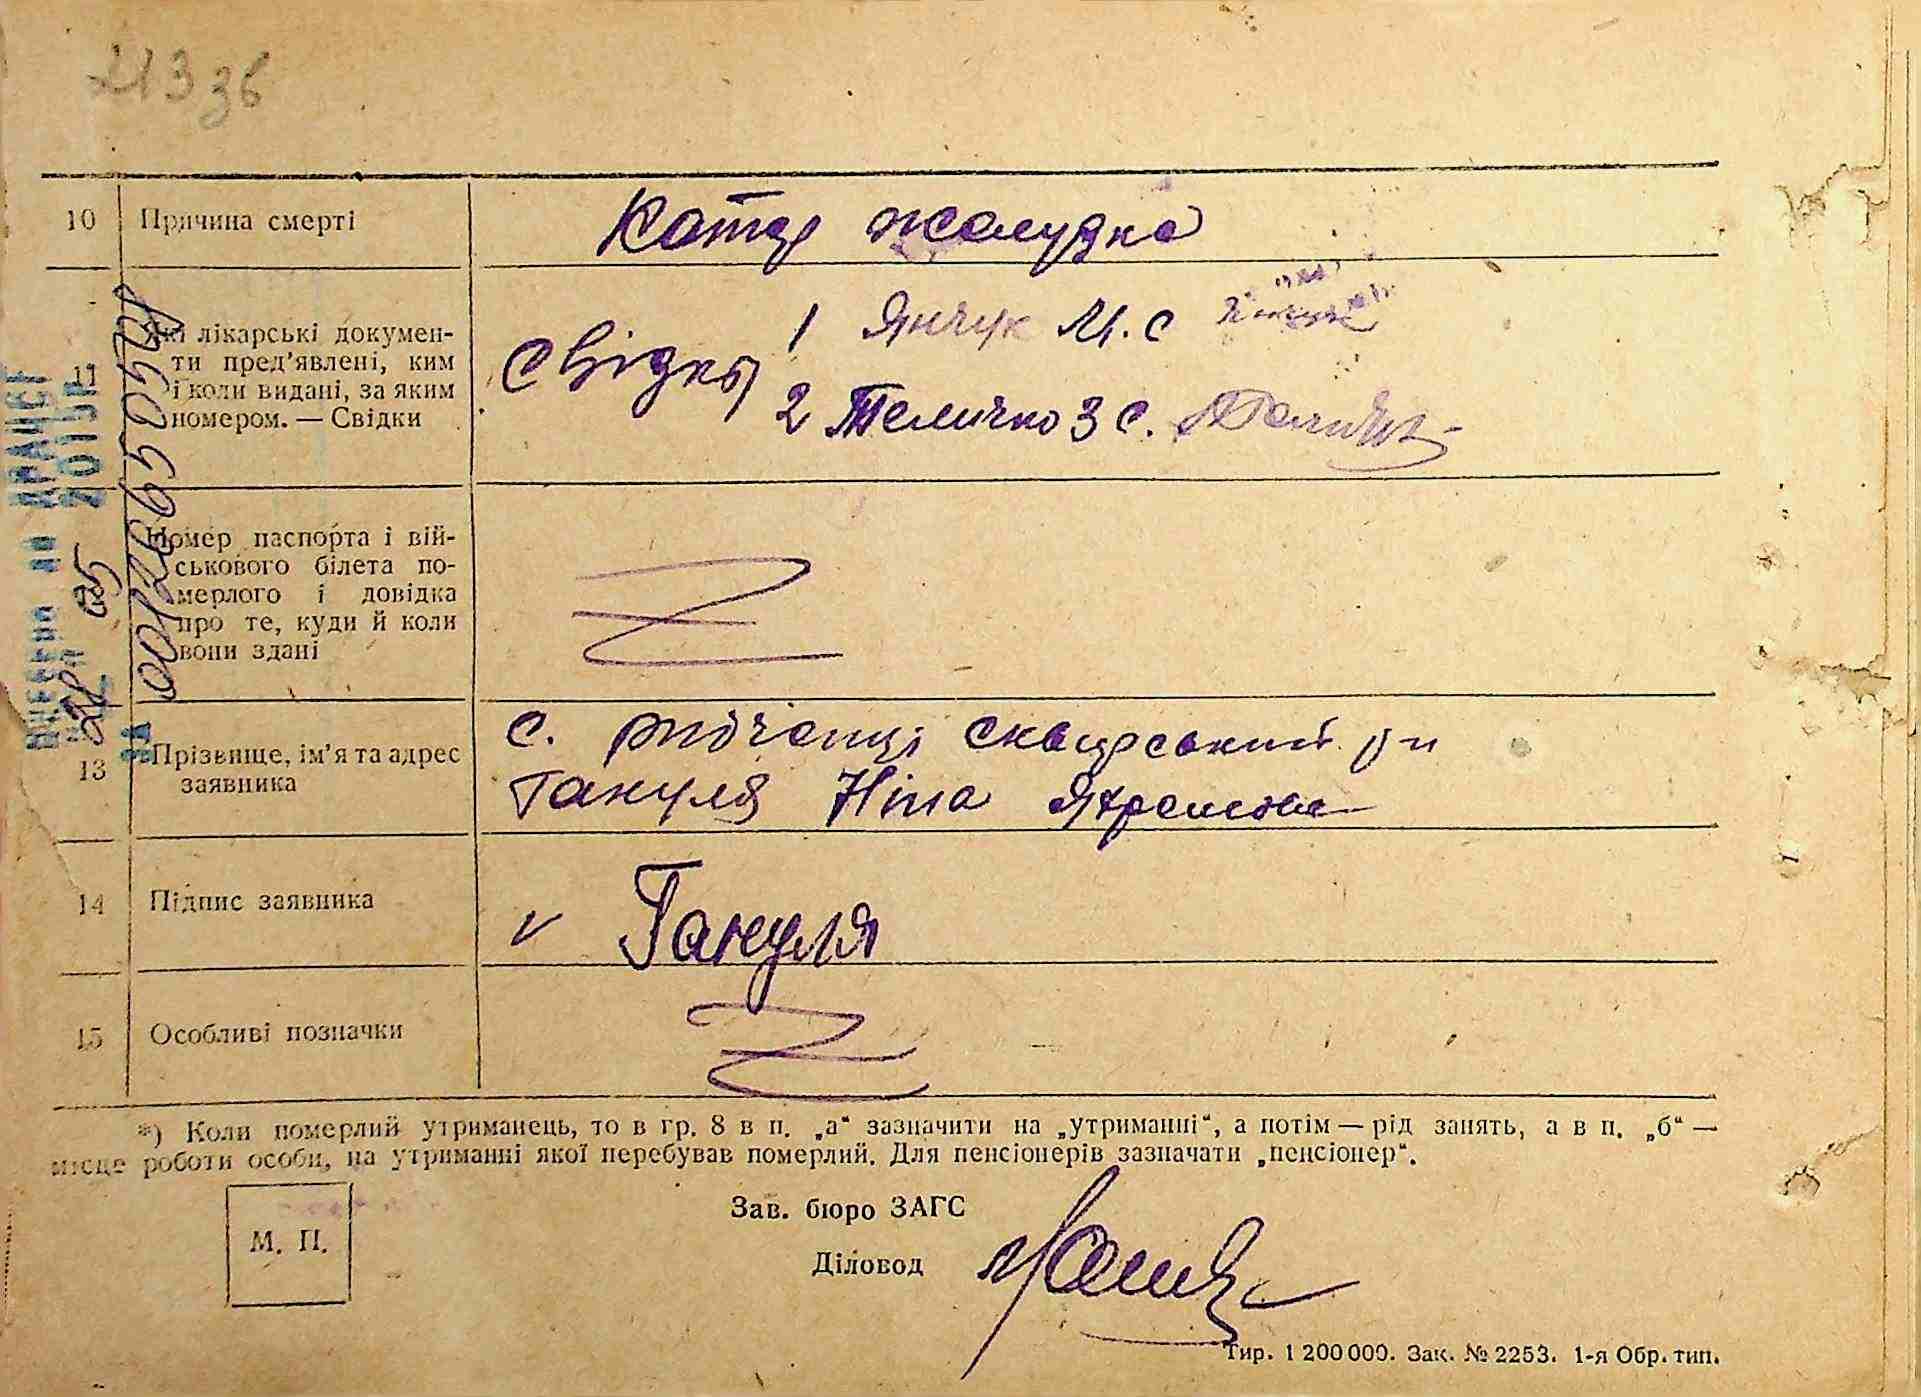 213 зв
10 Причина смерті Катар жолудка
11 Які лікарські докумен-
ти пред'явлені, ким
і коли видані, за яким
номером. — Свідки
Свідки 1 Янчук М. С
2 Теличко З С.
Номер паспорта і вій-
ськового білета по-
мерлого і довідка
про те, куди й коли
вони здані
13 Прізвище, ім'я та адрес
заявника
с. Рибченці Сквирський р н
Гануля Ніна
14 Підпис заявника v Гануля
15 Особливі позначки
*) Коли померлий утриманець, то в гр. 8 в п. „а“ зазначити на „утриманні“, а потім — рід занять, а в п. „б“ —
місце роботи особи, на утриманні якої перебував померлий. Для пенсіонерів зазначати „пенсіонер“.
М. П.
Зав. бюро ЗАГС
Діловод
Тир. 1 200 000. Зак. № 2253. 1-я Обр. тип.
Внесено до ДРАЦСГ
28 05 2015 р.
ЗА 00126950570